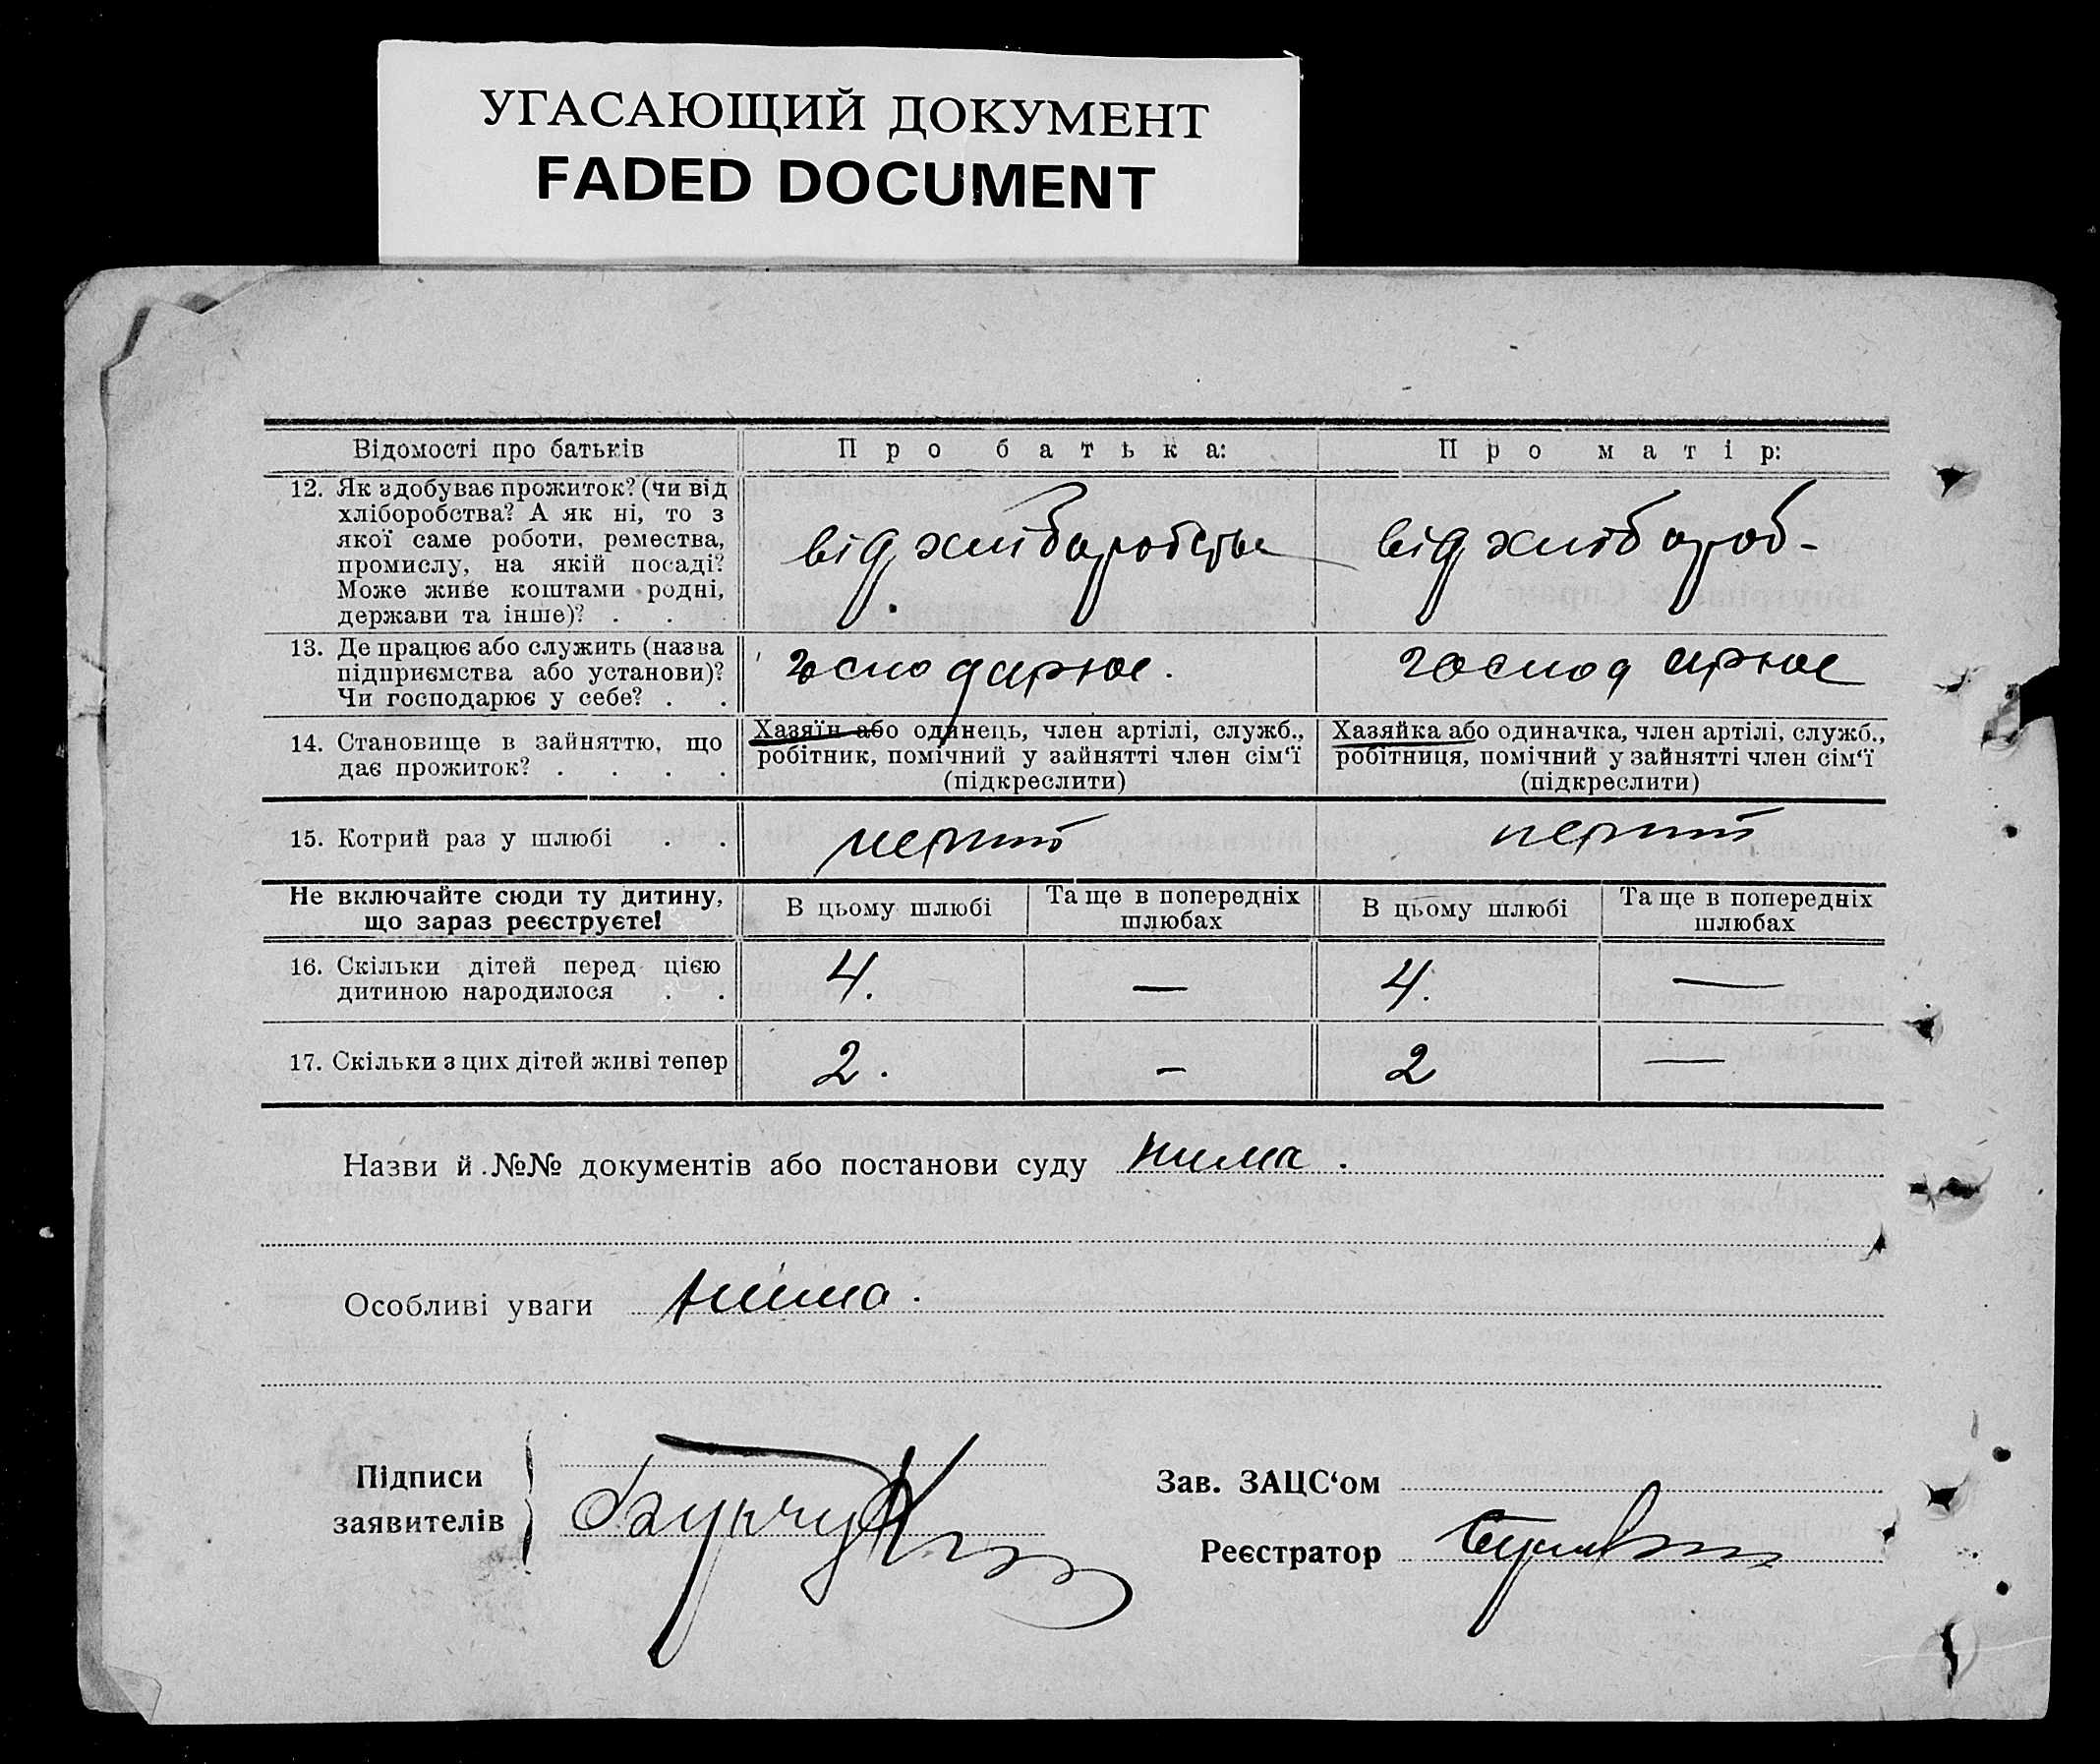 УГАСАЮЩИЙ ДОКУМЕНТ
FADED DOCUMENT
Відомості про батьків
Про батька:
Про матір:
12. Як здобуває прожиток? (чи від
хліборобства? А як ні, то з
якої саме роботи, ремества,
промислу, на якій посаді?
Може живе коштами родні,
держави та інше)? . .
від хліборобства
від хлібороб-
13. Де працює або служить (назва
підприємства або установи)?
Чи господарює у себе? . .
господарює.
господарює
14. Становище в зайняттю, що
дає прожиток? . . . .
Хазяїн або одинець, член артілі, служб.,
робітник, помічний у зайнятті член сім‘ї
(підкреслити)
Хазяйка або одиначка, член артілі, служб.,
робітниця, помічний у зайнятті член сім‘ї
(підкреслити)
15. Котрий раз у шлюбі . .
перший
перший
Не включайте сюди ту дитину,
що зараз реєструєте!
В цьому шлюбі
Та ще в попередніх
шлюбах
В цьому шлюбі
Та ще в попередніх
шлюбах
16. Скільки дітей перед цією
дитиною народилося . .
4.
—
4.
—
17. Скільки з цих дітей живі тепер
2.
–
2
—
Назви й №№ документів або постанови суду нима.
Особливі уваги нима.
Підписи
заявителів
Зав. ЗАЦС‘ом
Реєстратор